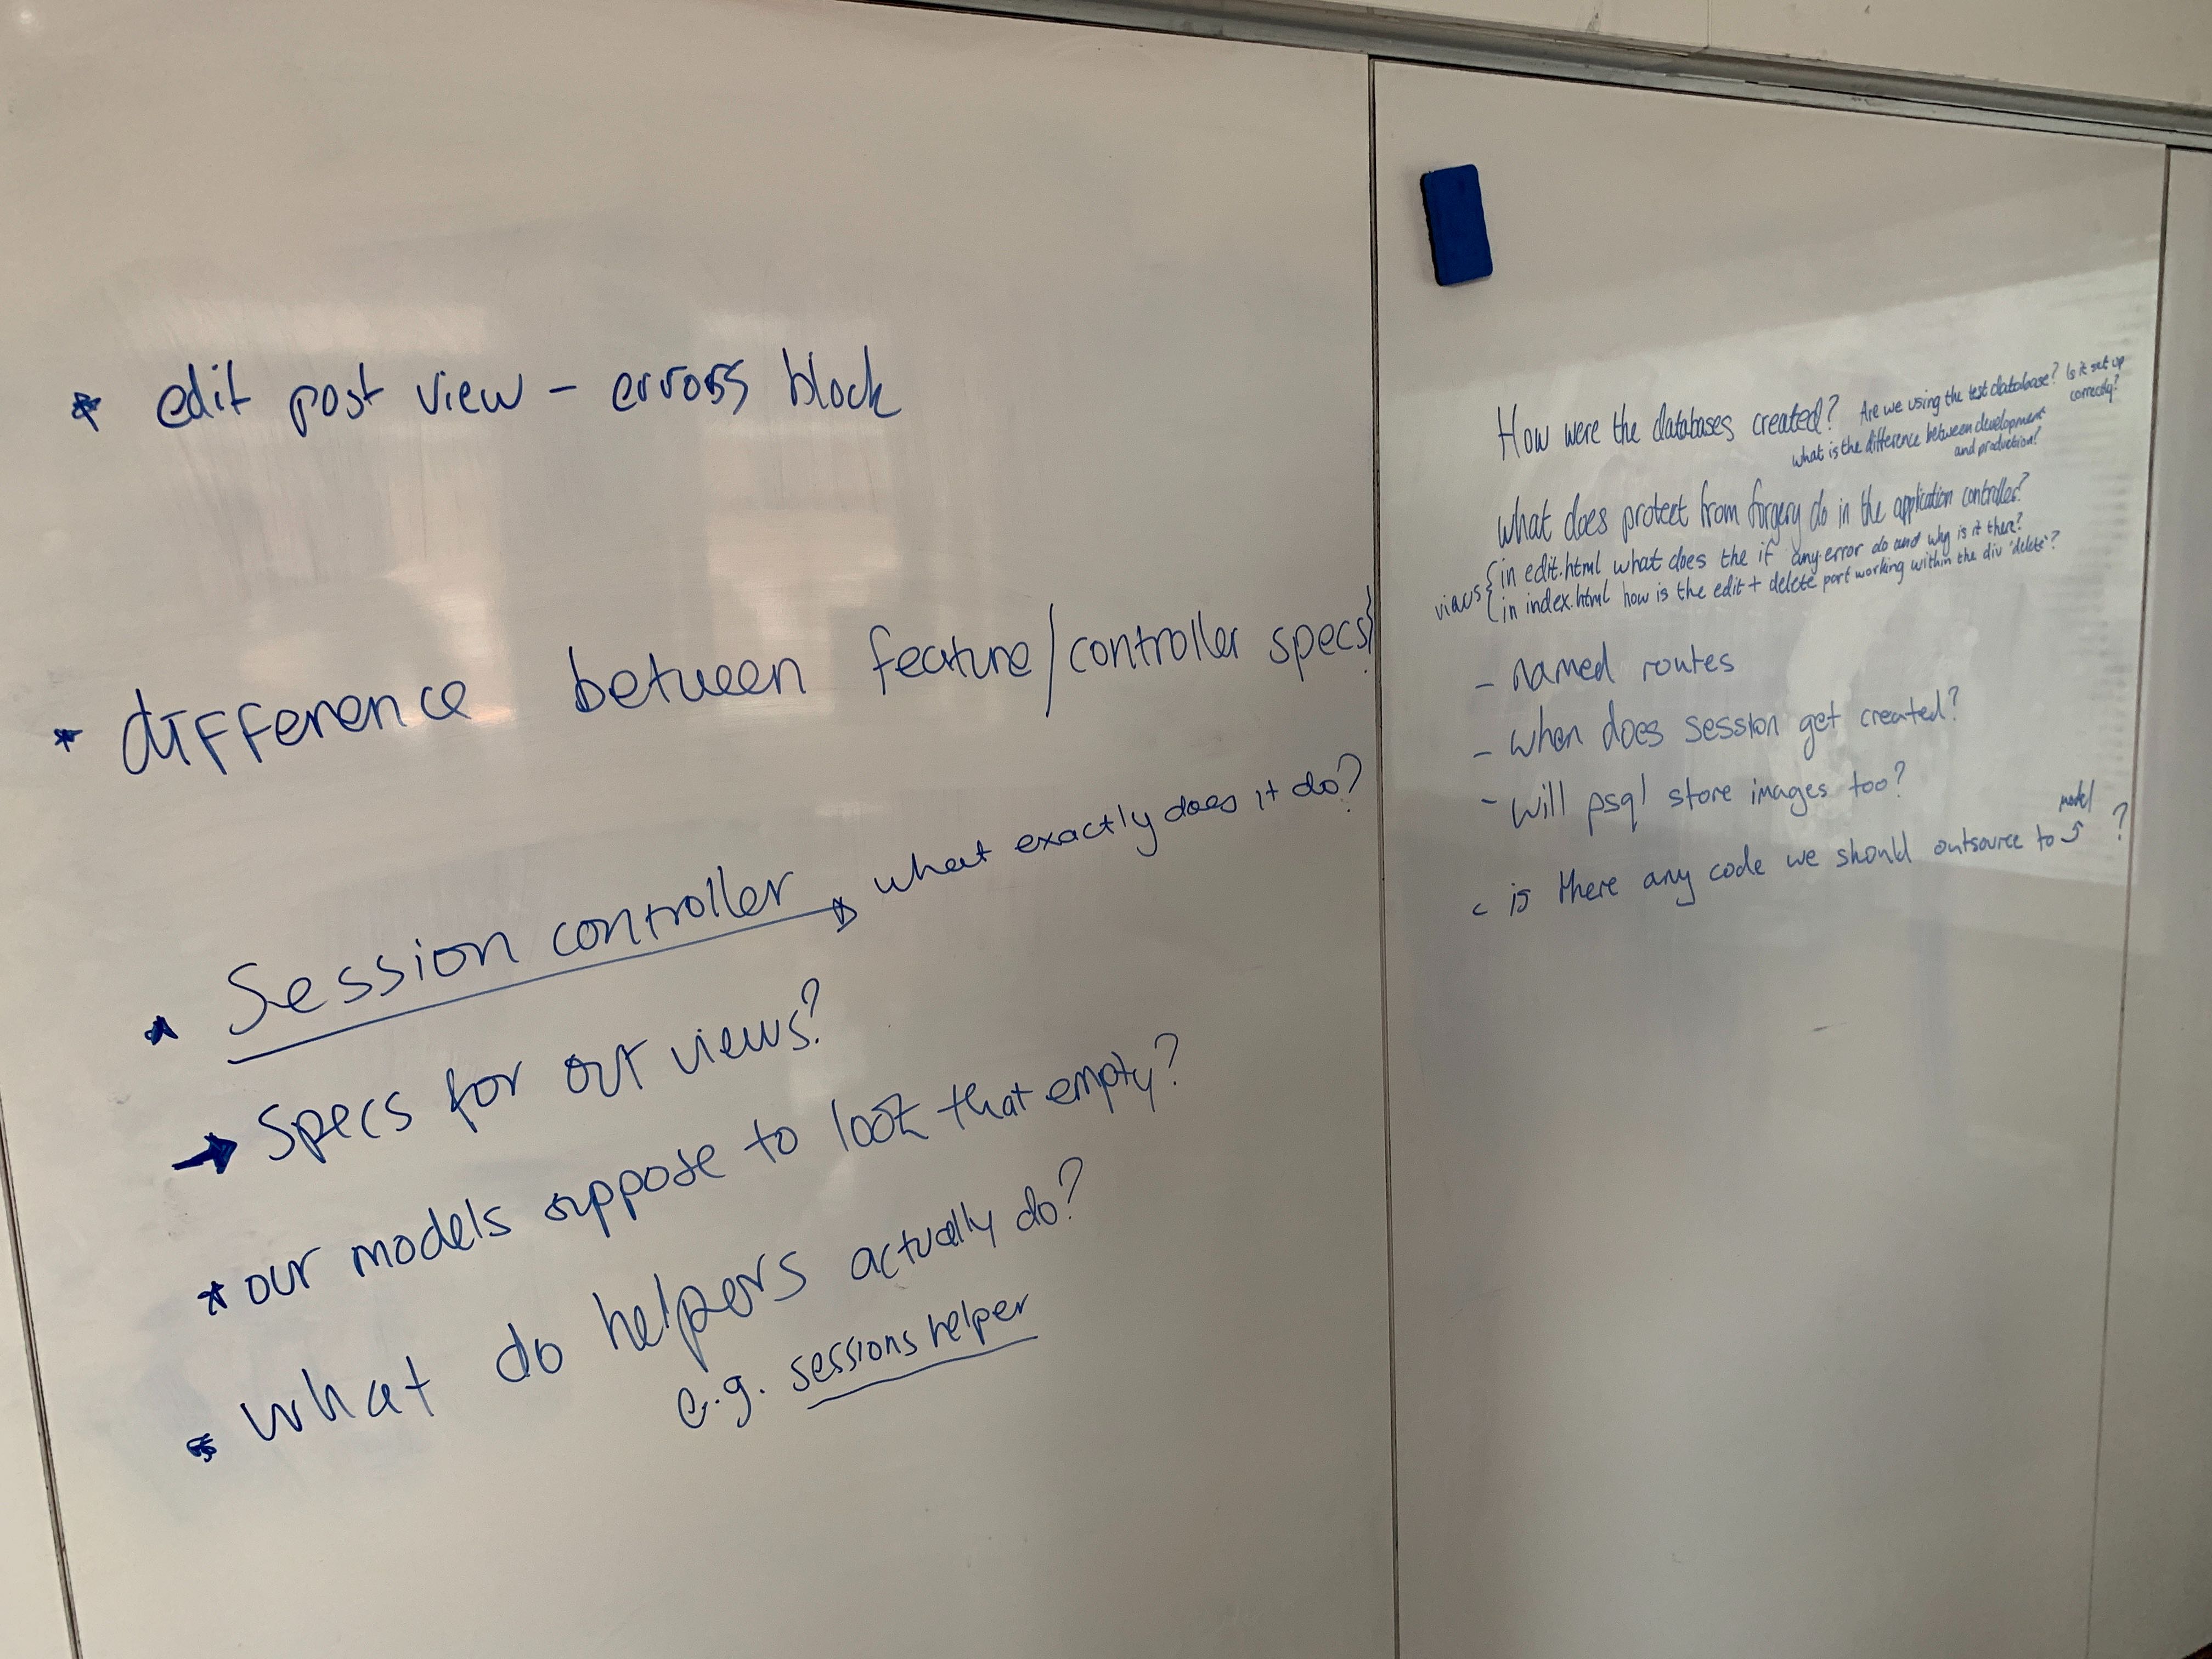 * edit post view - errors block
* difference between feature/controller specs
* Session controller → what exactly does it do?
→ Specs for our views?
* our models suppose to look that empty?
* what do helpers actually do?
e.g. sessions helper
How were the databases created? Are we using the test database? Is it set up correctly?
what is the difference between development and production?
what does protect from forgery do in the application controller?
views { in edit.html what does the if any error do and why is it there?
in index.html how is the edit + delete part working within the div 'delete'?
- named routes
- when does session get created?
- will psql store images too?
- is there any code we should outsource to model ?